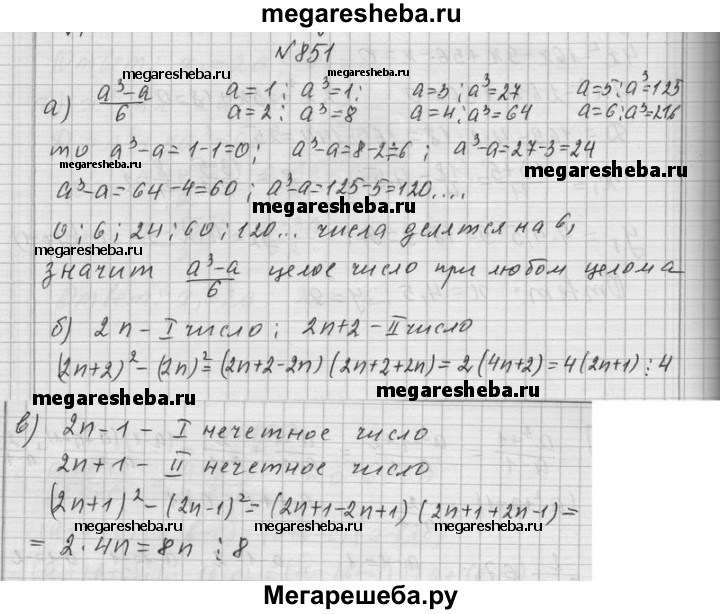 megaresheba.ru
№851
megaresheba.ru megaresheba.ru
а) a³-a/6 a=1; a³=1; a=3; a³=27 a=5; a³=125
a=2; a³=8 a=4; a³=64 a=6; a³=216
то a³-a=1-1=0; a³-a=8-2=6; a³-a=27-3=24
megaresheba.ru
a³-a=64-4=60; a³-a=125-5=120....
megaresheba.ru
0; 6; 24; 60; 120... числа делятся на 6,
megaresheba.ru
значит a³-a/6 целое число при любом целом a
б) 2n - I число; 2n+2 - II число
(2n+2)²-(2n)²=(2n+2-2n)(2n+2+2n)=2(4n+2)=4(2n+1)⋮4
megaresheba.ru megaresheba.ru
в) 2n-1 - I нечетное число
2n+1 - II нечетное число
(2n+1)²-(2n-1)²=(2n+1-2n+1)(2n+1+2n-1)=
megaresheba.ru megaresheba.ru megaresheba.ru
=2·4n=8n⋮8
Мегарешеба.ру